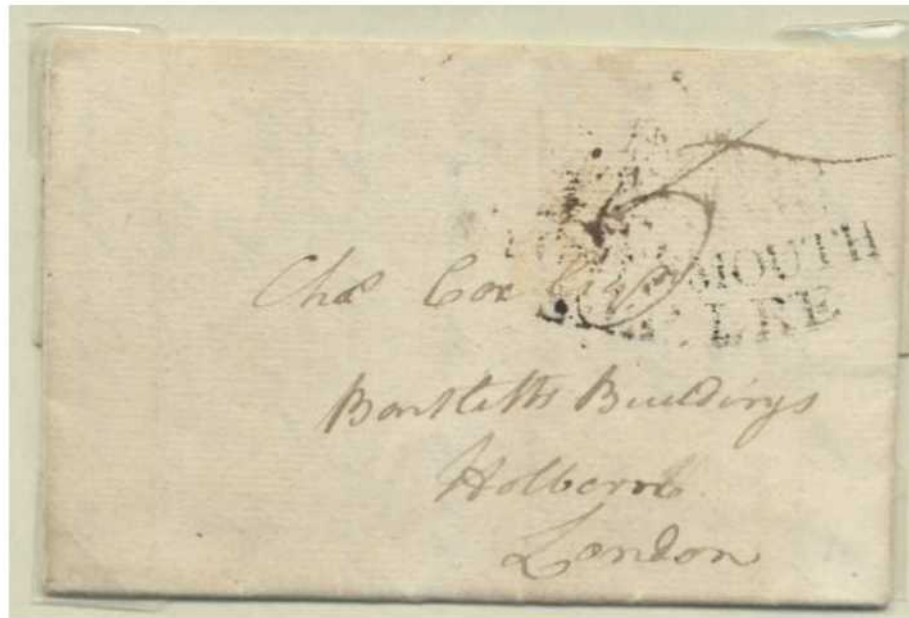 MOUTH
LRE
Chas Cox Esqr
Bartletts Buildings
Holborn
London